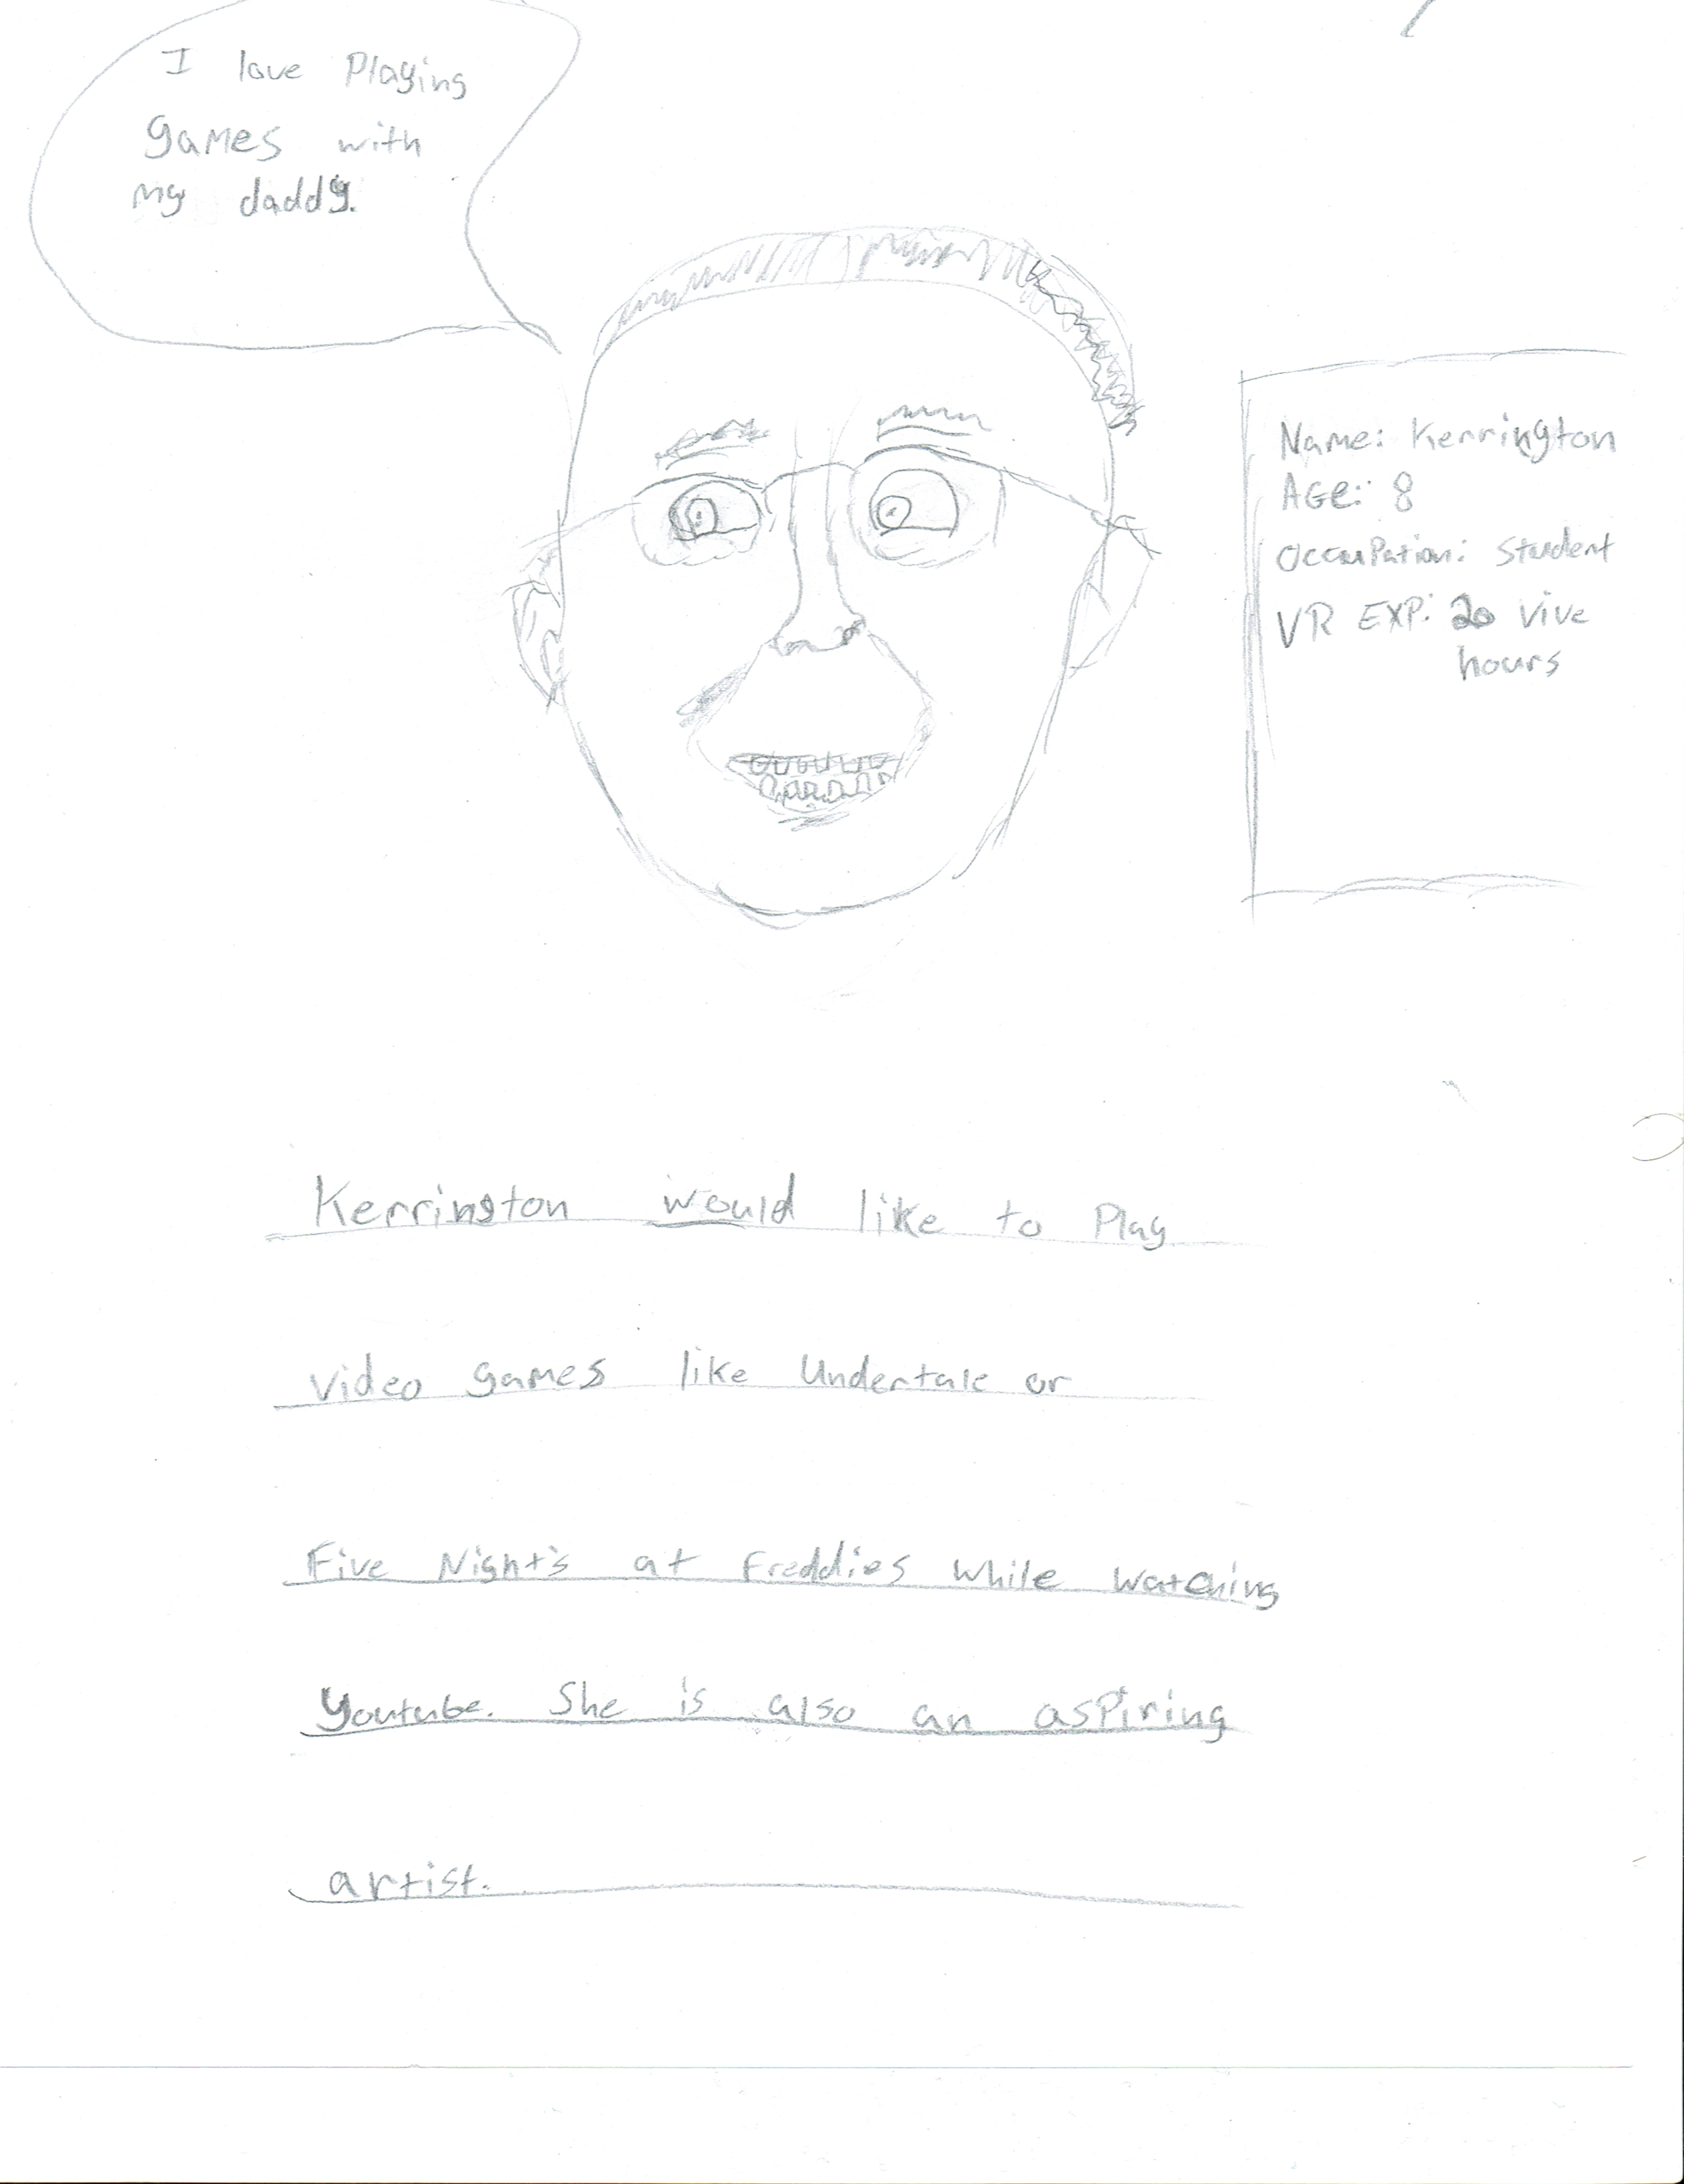 I love Playing
games with
my daddy.
Name: Kerrington
Age: 8
Occupation: Student
VR EXP: 20 Vive
hours
Kerrington would like to Play
video games like Undertale or
Five Night's at Freddies while watching
Youtube. She is also an aspiring
artist.